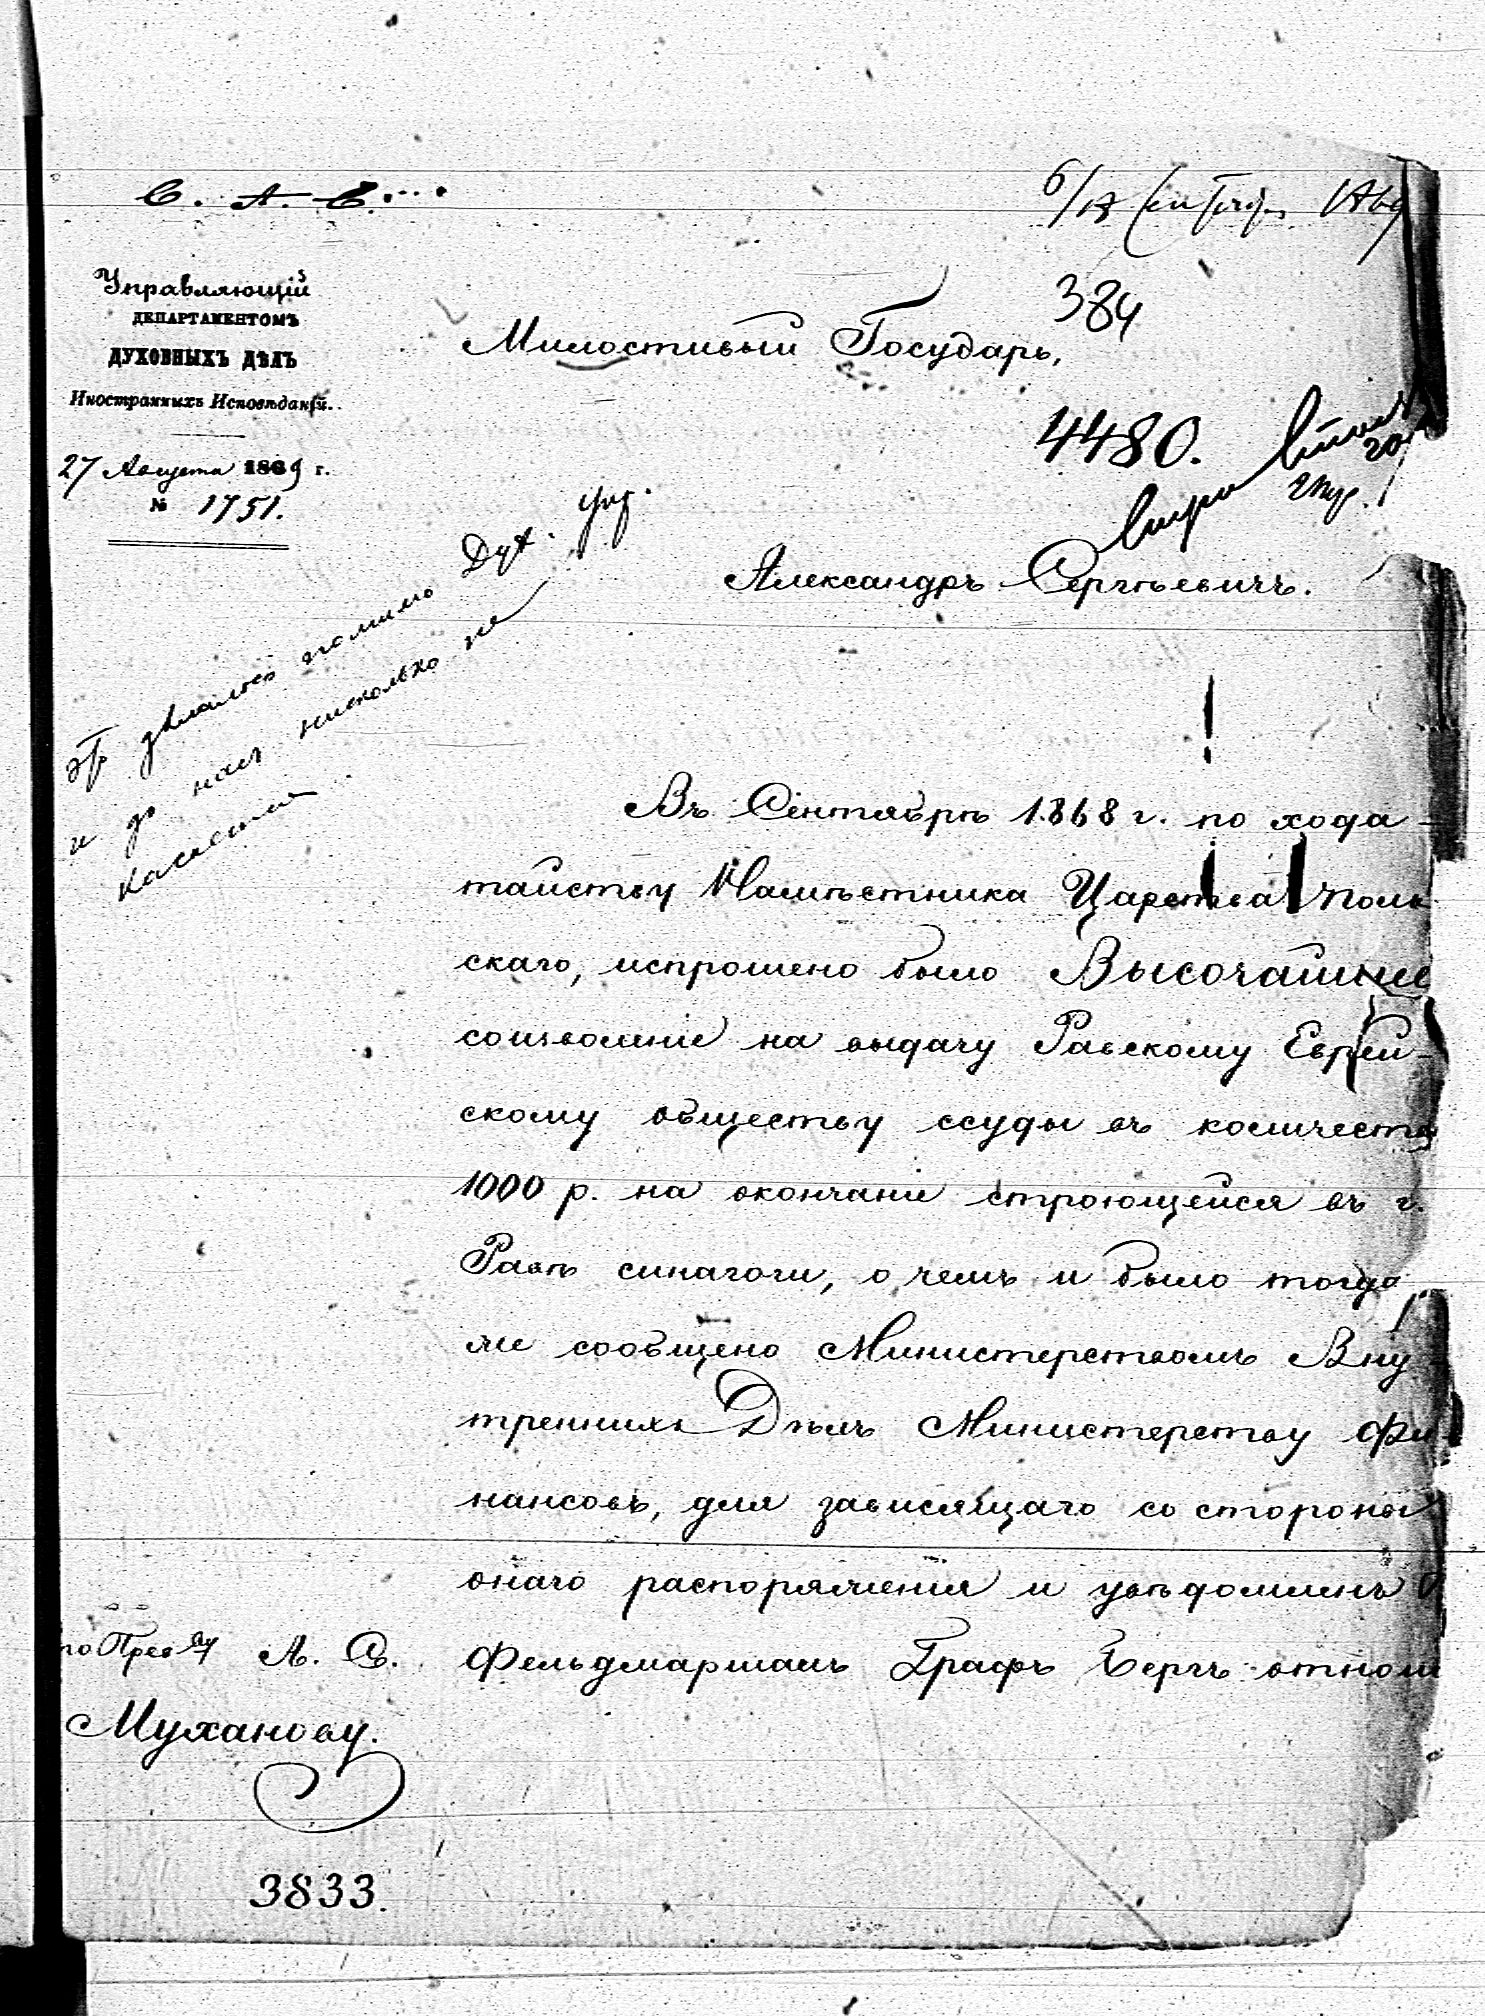 С. А. С....
6/18 Сентября 1869
Управляющій
ДЕПАРТАМЕНТОМЪ
ДУХОВНЫХЪ ДѢЛЪ
Иностранныхъ Исповѣданій.
27 Августа 1869 г.
№ 1751.
384
Милостивый Государь,
4480.
Александръ Сергѣевичъ.
Это дѣлалось помимо Дух. Упр.
и до насъ нисколько не
касается
Въ Сентябрѣ 1868 г. по хода-
тайству Намѣстника Царства Поль-
скаго, испрошено было Высочайшее
соизволеніе на выдачу Равскому Еврей-
скому обществу ссуды въ количествѣ
1000 р. на окончаніе строющейся въ г.
Равѣ синагоги, о чемъ и было тогда
же сообщено Министерствомъ Вну-
треннихъ Дѣлъ Министерству Фи-
нансовъ, для зависящаго со стороны
онаго распоряженія и увѣдомленъ
Фельдмаршалъ Графъ Бергъ отнош
го Прев-ву А. С.
Муханову.
3833.